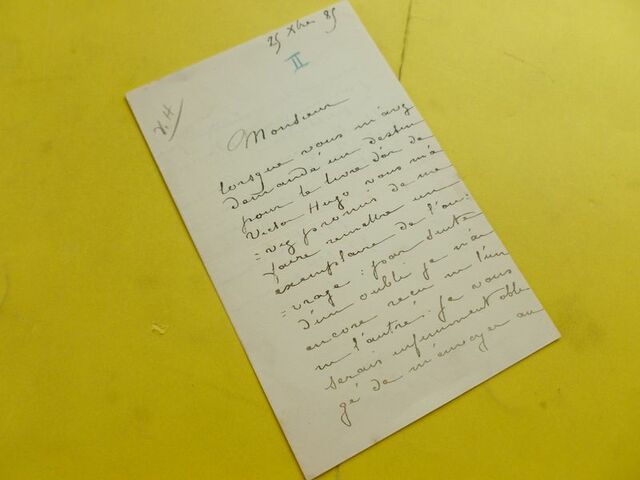 25 Xbre 85
II
V. H
Monsieur
lorsque vous m'avez
demandé un dessin
pour le livre d'or de
Victor Hugo vous m'a
=vez promis de me
faire remettre un
exemplaire de l'ou=
=vrage : par suite
d'un oubli je n'ai
encore reçu ni l'un
ni l'autre : je vous
serais infiniment obli
gé de m'envoyer au